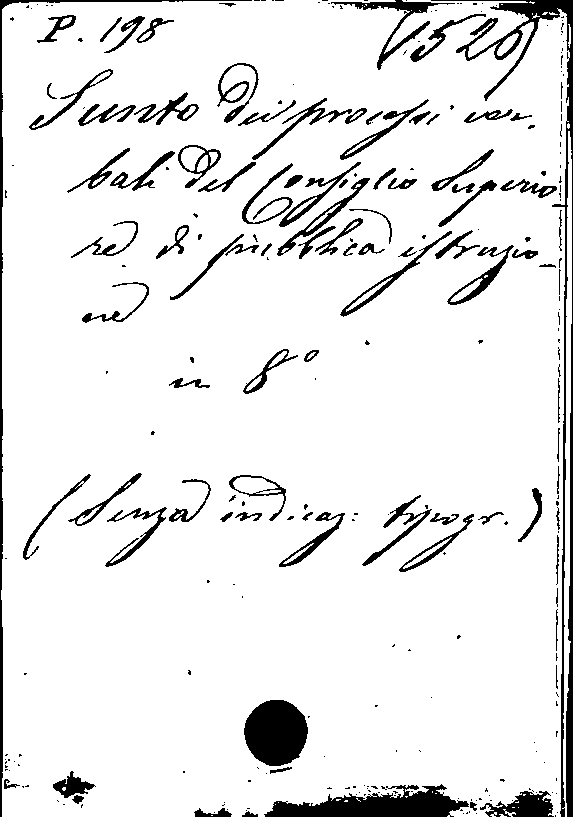 P. 198 (1526)
Sunto dei processi ver-
bali del Consiglio Superio-
re di pubblica istruzio-
ne
in 8°
(Senza indicaz: tipogr.)